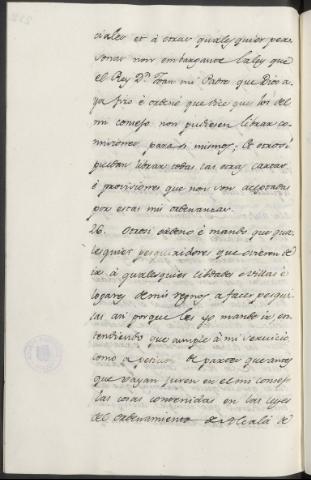 ciales et à otras quales quier per
sonas non embargante la ley que
el Rey Dn. Joan mi Padre que Dios a
ya fizo è ordenò que dice que los del
mi consejo non pudiesen librar co
misiones para si mismos; et otrosi
puedan librar todas las otras cartas
è provisiones que non son aceptadas
por estas mis ordenanzas.
26. Otrosi ordeno è mando que qua
lesquier pesquiridores que ovieren de
ir à qualesquier cibdades è villas è
logares de mis regnos a facer pesqui
sas asi porque les yo mande ir en
tendiendo que cumple à mi servicio
como a peticion de partes que antes
que vayan juren en el mi consejo
las cosas contenidas en las leyes
del ordenamiento de Alcalá de